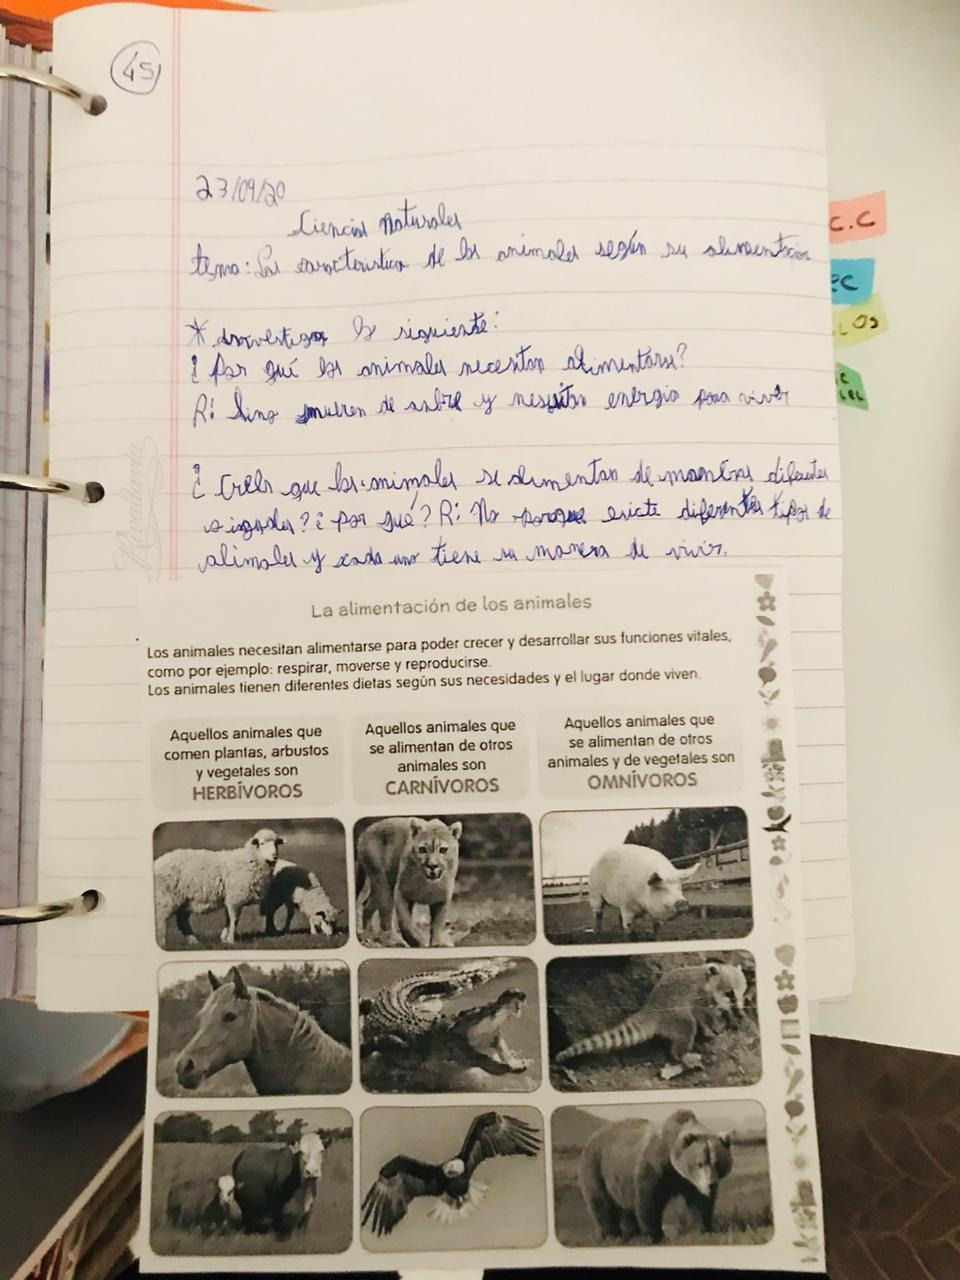 45
23/09/20
Ciencias Naturales
tema: Las caracteristica de los animales según su alimentacion
* Investigar lo siguiente:
¿Por qué los animales necesitan alimentarse?
R: Sino mueren de y energia para vivir
¿Creés que los animales se alimentan de maneras diferentes
o iguales? ¿Por qué? R: No porque existe diferentes tipos de
alimales y cada uno tiene su manera de vivir.
Rivadavia
C.C
La alimentación de los animales
Los animales necesitan alimentarse para poder crecer y desarrollar sus funciones vitales,
como por ejemplo: respirar, moverse y reproducirse.
Los animales tienen diferentes dietas según sus necesidades y el lugar donde viven.
Aquellos animales que
comen plantas, arbustos
y vegetales son
HERBÍVOROS
Aquellos animales que
se alimentan de otros
animales son
CARNÍVOROS
Aquellos animales que
se alimentan de otros
animales y de vegetales son
OMNÍVOROS